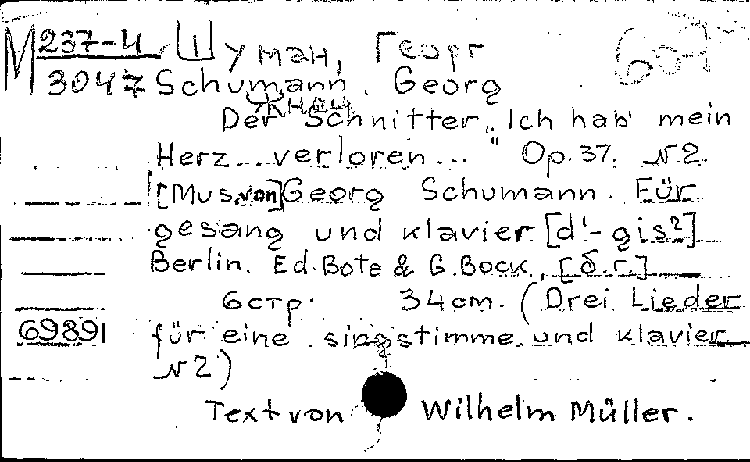 М 237-И Шуман, Георг
3047 Schumann. Georg
Der Schnitter „Ich hab mein
Herz ... verloren ..." Op. 37. N 2.
[Mus. von] Georg Schumann. Für
gesang und klavier [d¹-gis²]
Berlin. Ed. Bote & G. Bock, [б.г.]
6 стр. 34 cm. (Drei Lieder
69891 für eine singstimme und klavier
N 2)
Text von Wilhelm Müller.